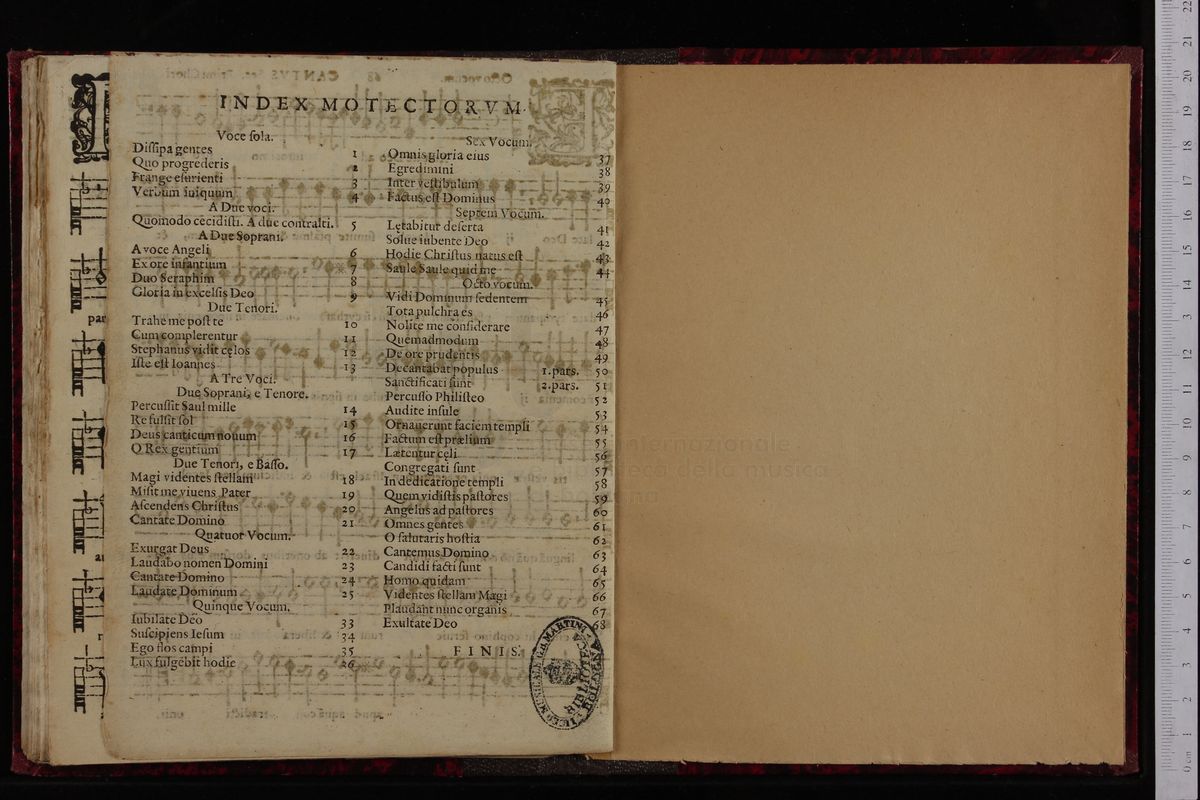 INDEX MOTECTORVM.
Voce ſola.
Diſſipa gentes 1
Quo progrederis 2
Frange eſurienti 3
Verbum iniquum 4
A Due voci.
Quomodo cecidiſti. A due contralti. 5
A Due Soprani.
A voce Angeli 6
Ex ore infantium 7
Duo Seraphim 8
Gloria in excelſis Deo 9
Due Tenori.
Trahe me poſt te 10
Cum complerentur 11
Stephanus vidit cęlos 12
Iſte eſt Ioannes 13
A Tre Voci.
Due Soprani, e Tenore.
Percuſſit Saul mille 14
Refulſit ſol 15
Deus canticum nouum 16
O Rex gentium 17
Due Tenori, e Baſſo.
Magi videntes ſtellam 18
Miſit me viuens Pater 19
Aſcendens Chriſtus 20
Cantate Domino 21
Quatuor Vocum.
Exurgat Deus 22
Laudabo nomen Domini 23
Cantate Domino 24
Laudate Dominum 25
Quinque Vocum.
Iubilate Deo 33
Suſcipiens Ieſum 34
Ego flos campi 35
Lux fulgebit hodie 26
Sex Vocum.
Omnis gloria eius 37
Egredimini 38
Inter veſtibulum 39
Factus eſt Dominus 40
Septem Vocum.
Lętabitur deſerta 41
Solue iubente Deo 42
Hodie Chriſtus natus eſt 43
Saule Saule quid me 44
Octo vocum.
Vidi Dominum ſedentem 45
Tota pulchra es 46
Nolite me conſiderare 47
Quemadmodum 48
De ore prudentis 49
Decantabat populus 1.pars. 50
Sanctificati ſunt 2.pars. 51
Percuſſo Philiſteo 52
Audite inſule 53
Ornauerunt faciem templi 54
Factum eſt prælium 55
Lætentur cęli 56
Congregati ſunt 57
In dedicatione templi 58
Quem vidiſtis paſtores 59
Angelus ad paſtores 60
Omnes gentes 61
O ſalutaris hoſtia 62
Cantemus Domino 63
Candidi facti ſunt 64
Homo quidam 65
Videntes ſtellam Magi 66
Plaudant nunc organis 67
Exultate Deo 68
FINIS.
LICEO MUSICALE G.B. MARTINI
BIBLIOTECA
BOLOGNA
par
internazionale
della musica